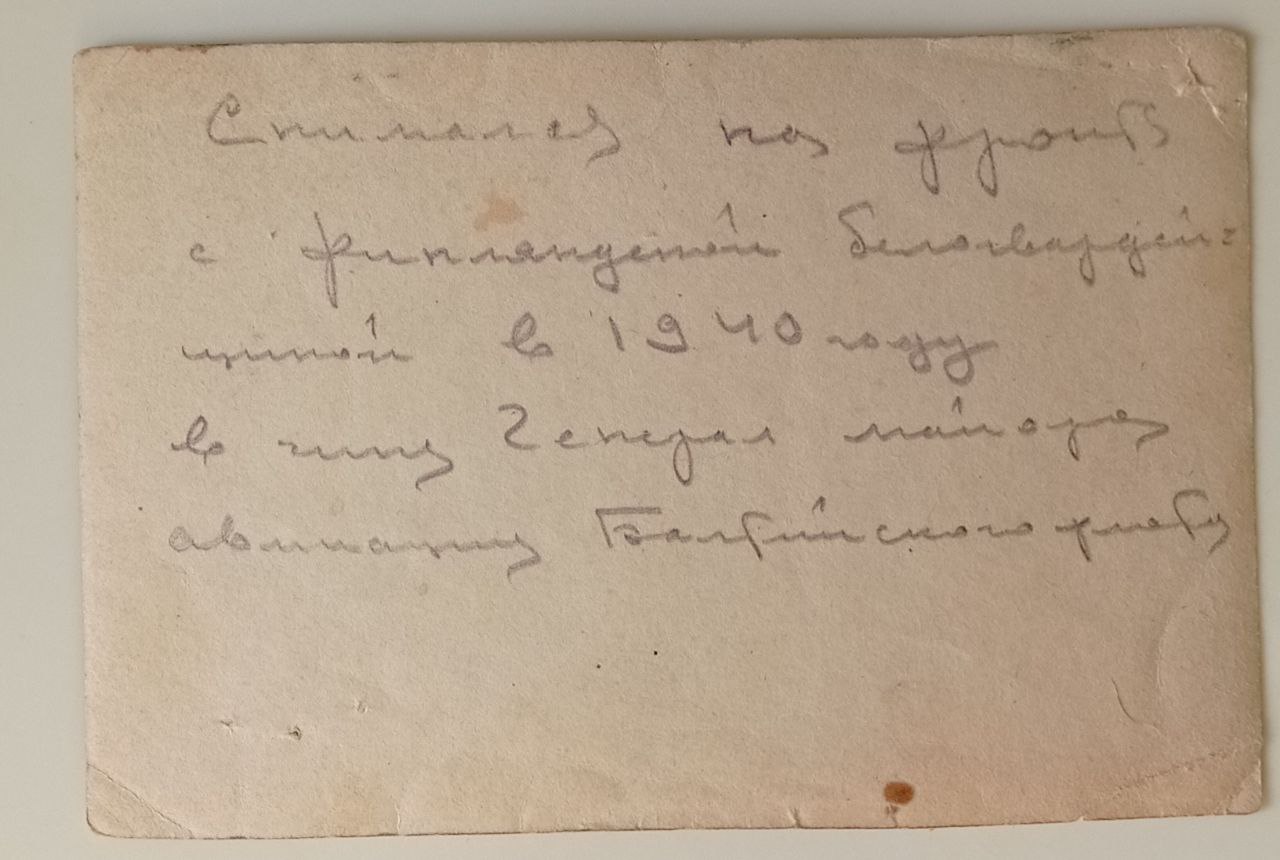 Снимался на фронтѣ
с финляндской белогвардей=
щиной в 1940 году
в чину Генерал майора
авиации Балтийского флоту